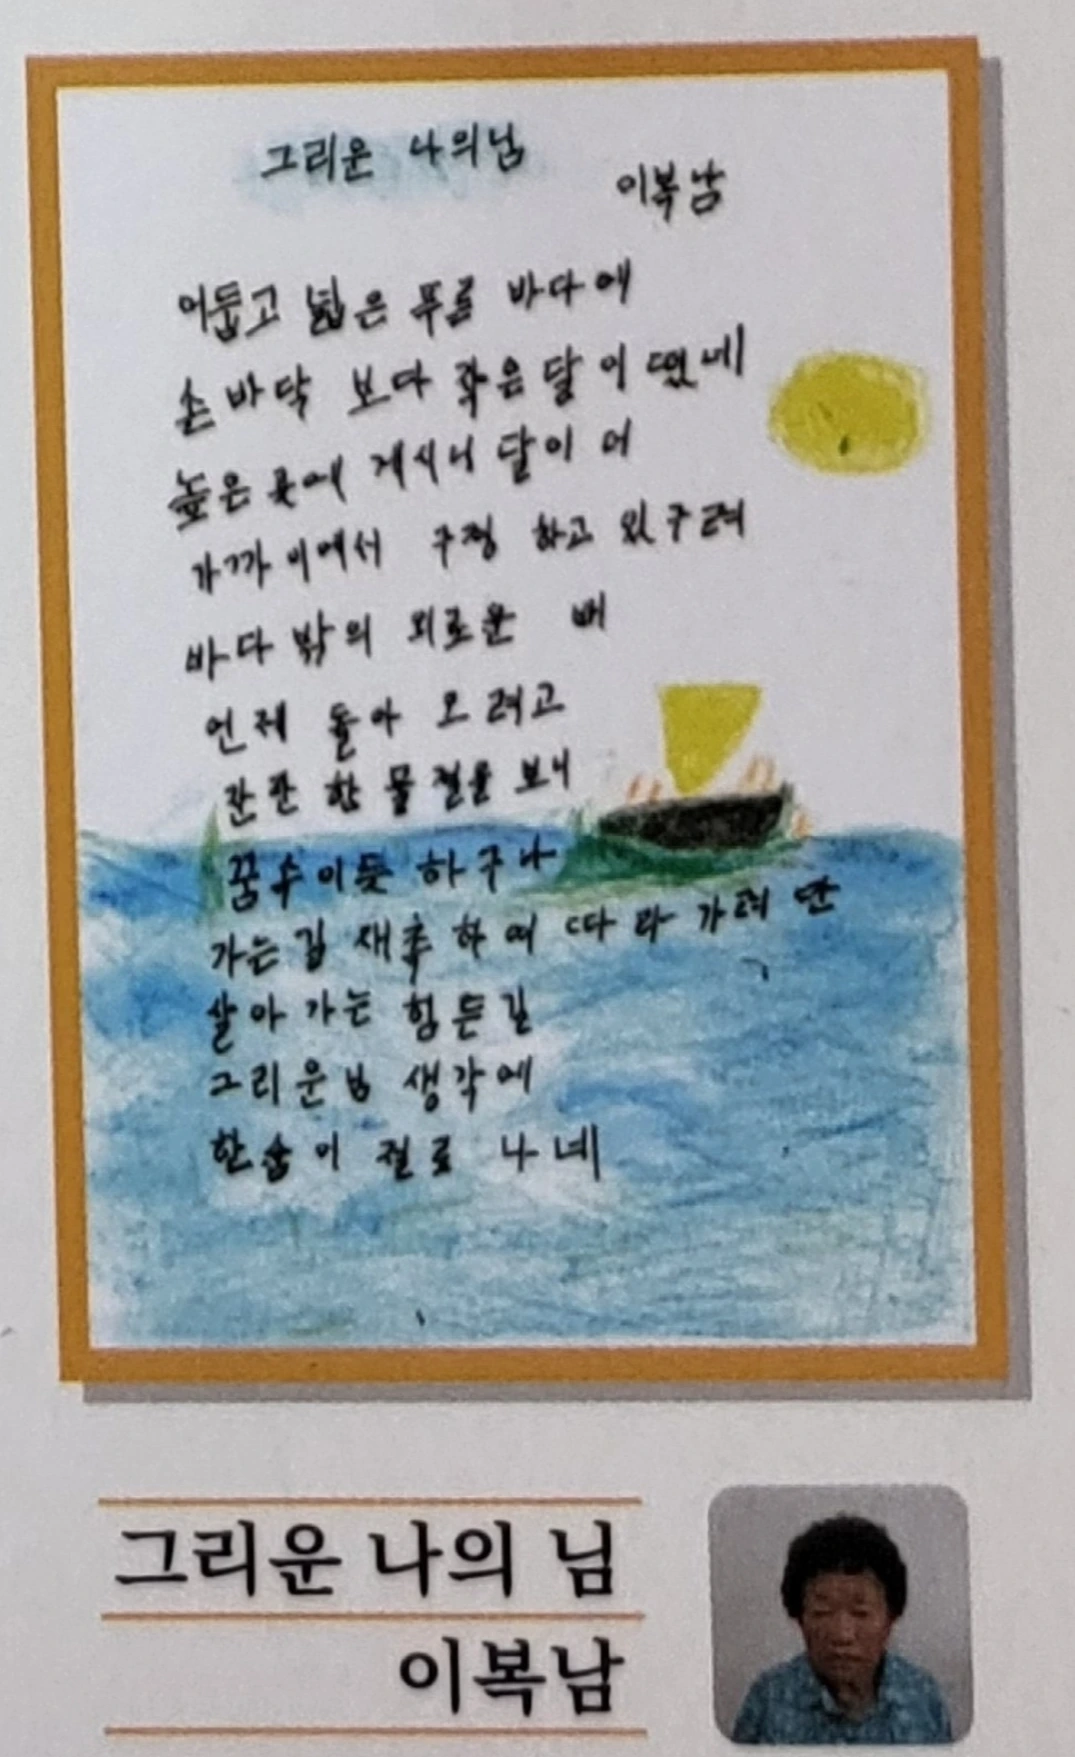 그리운 나의님
이복남
어둡고 넓은 푸른 바다에
손바닥 보다 작은달이 떴네
높은 곳에 게시니 달이 어
가까이에서 구경 하고 있구려
바다 밖의 외로운 배
언제 돌아 오려고
잔잔한 물결을 보니
꿈수이듯 하구나
가는길 재촉 하여 따라 가려만
살아가는 힘든길
그리운님 생각에
한숨이 절로 나네
그리운 나의 님
이복남